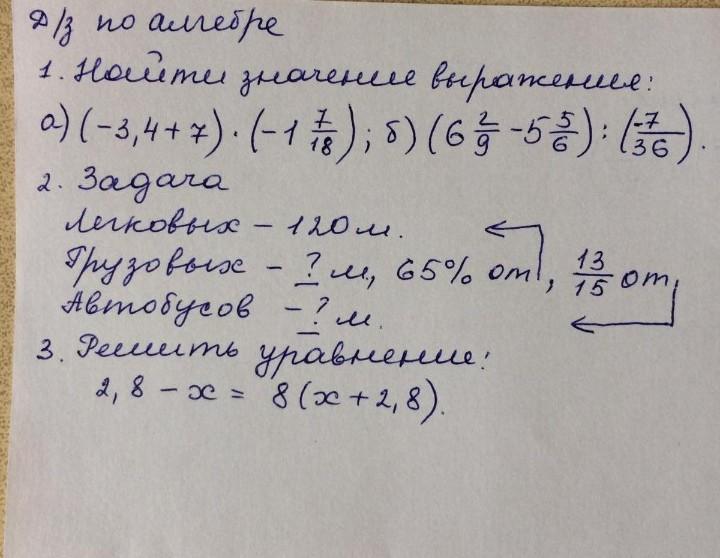 Д/з по алгебре
1. Найти значение выражения:
а) (-3,4+7)·(-1 7/18); б) (6 2/9 -5 5/6):(-7/36).
2. Задача
Легковых - 120 м.
Грузовых - ? м, 65% от, 13/15 от,
Автобусов - ? м.
3. Решить уравнение:
2,8 - х = 8(х+2,8).